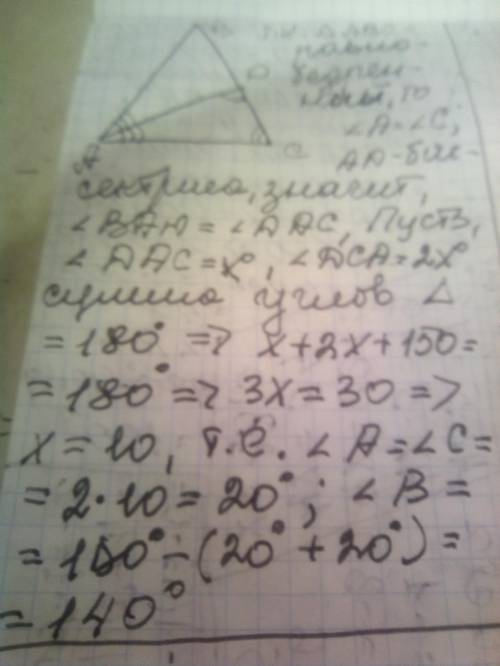 B Т.к. △ABC
равно-
D бедрен-
ный, то
∠A=∠C;
A C AD-бис-
сектриса, значит,
∠BAD = ∠DAC, Пусть,
∠DAC=x°, ∠DCA=2x°
сумма углов △
=180° => x+2x+150=
=180° => 3x=30 =>
x=10, т.е. ∠A=∠C=
=2·10=20°; ∠B=
=180°-(20°+20°)=
=140°